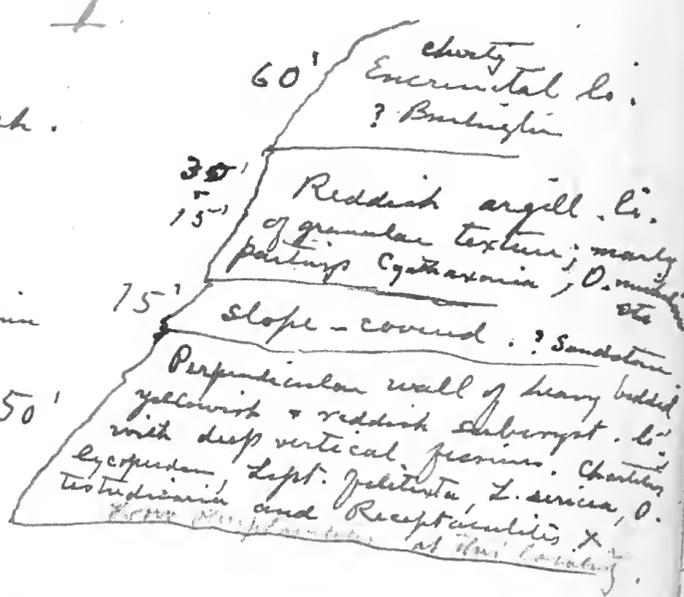 60' cherty
Encrinital li.
? Burlington
Reddish argill. li.
15' of granular texture; marly
partings Cyathaxonia, O.
etc
75' slope-covered. ? Sandstone
Perpendicular wall of heavy bedded
50' yellowish & reddish subcryst. li.
with deep vertical fissures. Chaetetes
lycoperdon, Lept. filitexta, L. sericea, O.
testudinaria and Receptaculites X
at this locality.